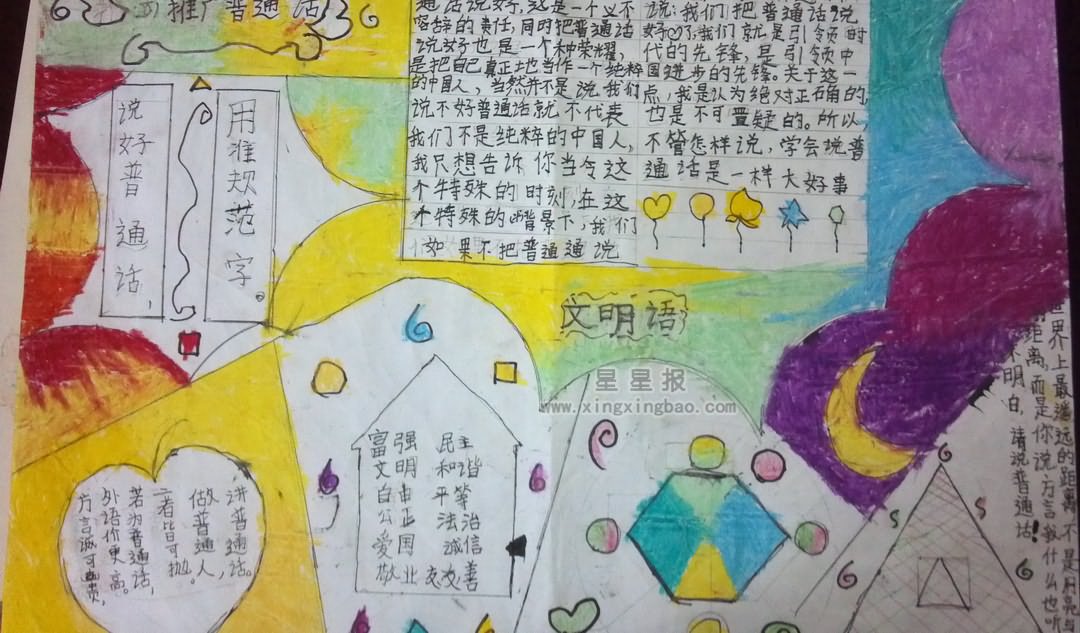 推广普通话
说好普通话,
用准规范字。
通话说好,这是一个义不
容辞的责任,同时把普通话
说好也是一个种荣耀,
是把自己真正地当作一个纯粹
的中国人,当然并不是说我们
说不好普通话就不代表
我们不是纯粹的中国人,
我只想告诉你当今这
个特殊的时刻,在这
个特殊的背景下,我们
如果不把普通通说
说:我们把普通话说
好了,我们就是引领时
代的先锋,是引领中
国进步的先锋。关于这一
点,我是认为绝对正确的,
也是不可置疑的。所以,
不管怎样说,学会说普
通话是一样大好事
文明语
星星报
www.xingxingbao.com
富强 民主
文明 和谐
自由 平等
公正 法治
爱国 诚信
敬业 友善
讲普通话。
做普通人,
二者皆可抛。
若为普通话,
外语价更高。
方言诚可贵,
世界上最遥远的距离不是月亮与
的距离,而是你说方言我什么也听
不明白,请说普通话!